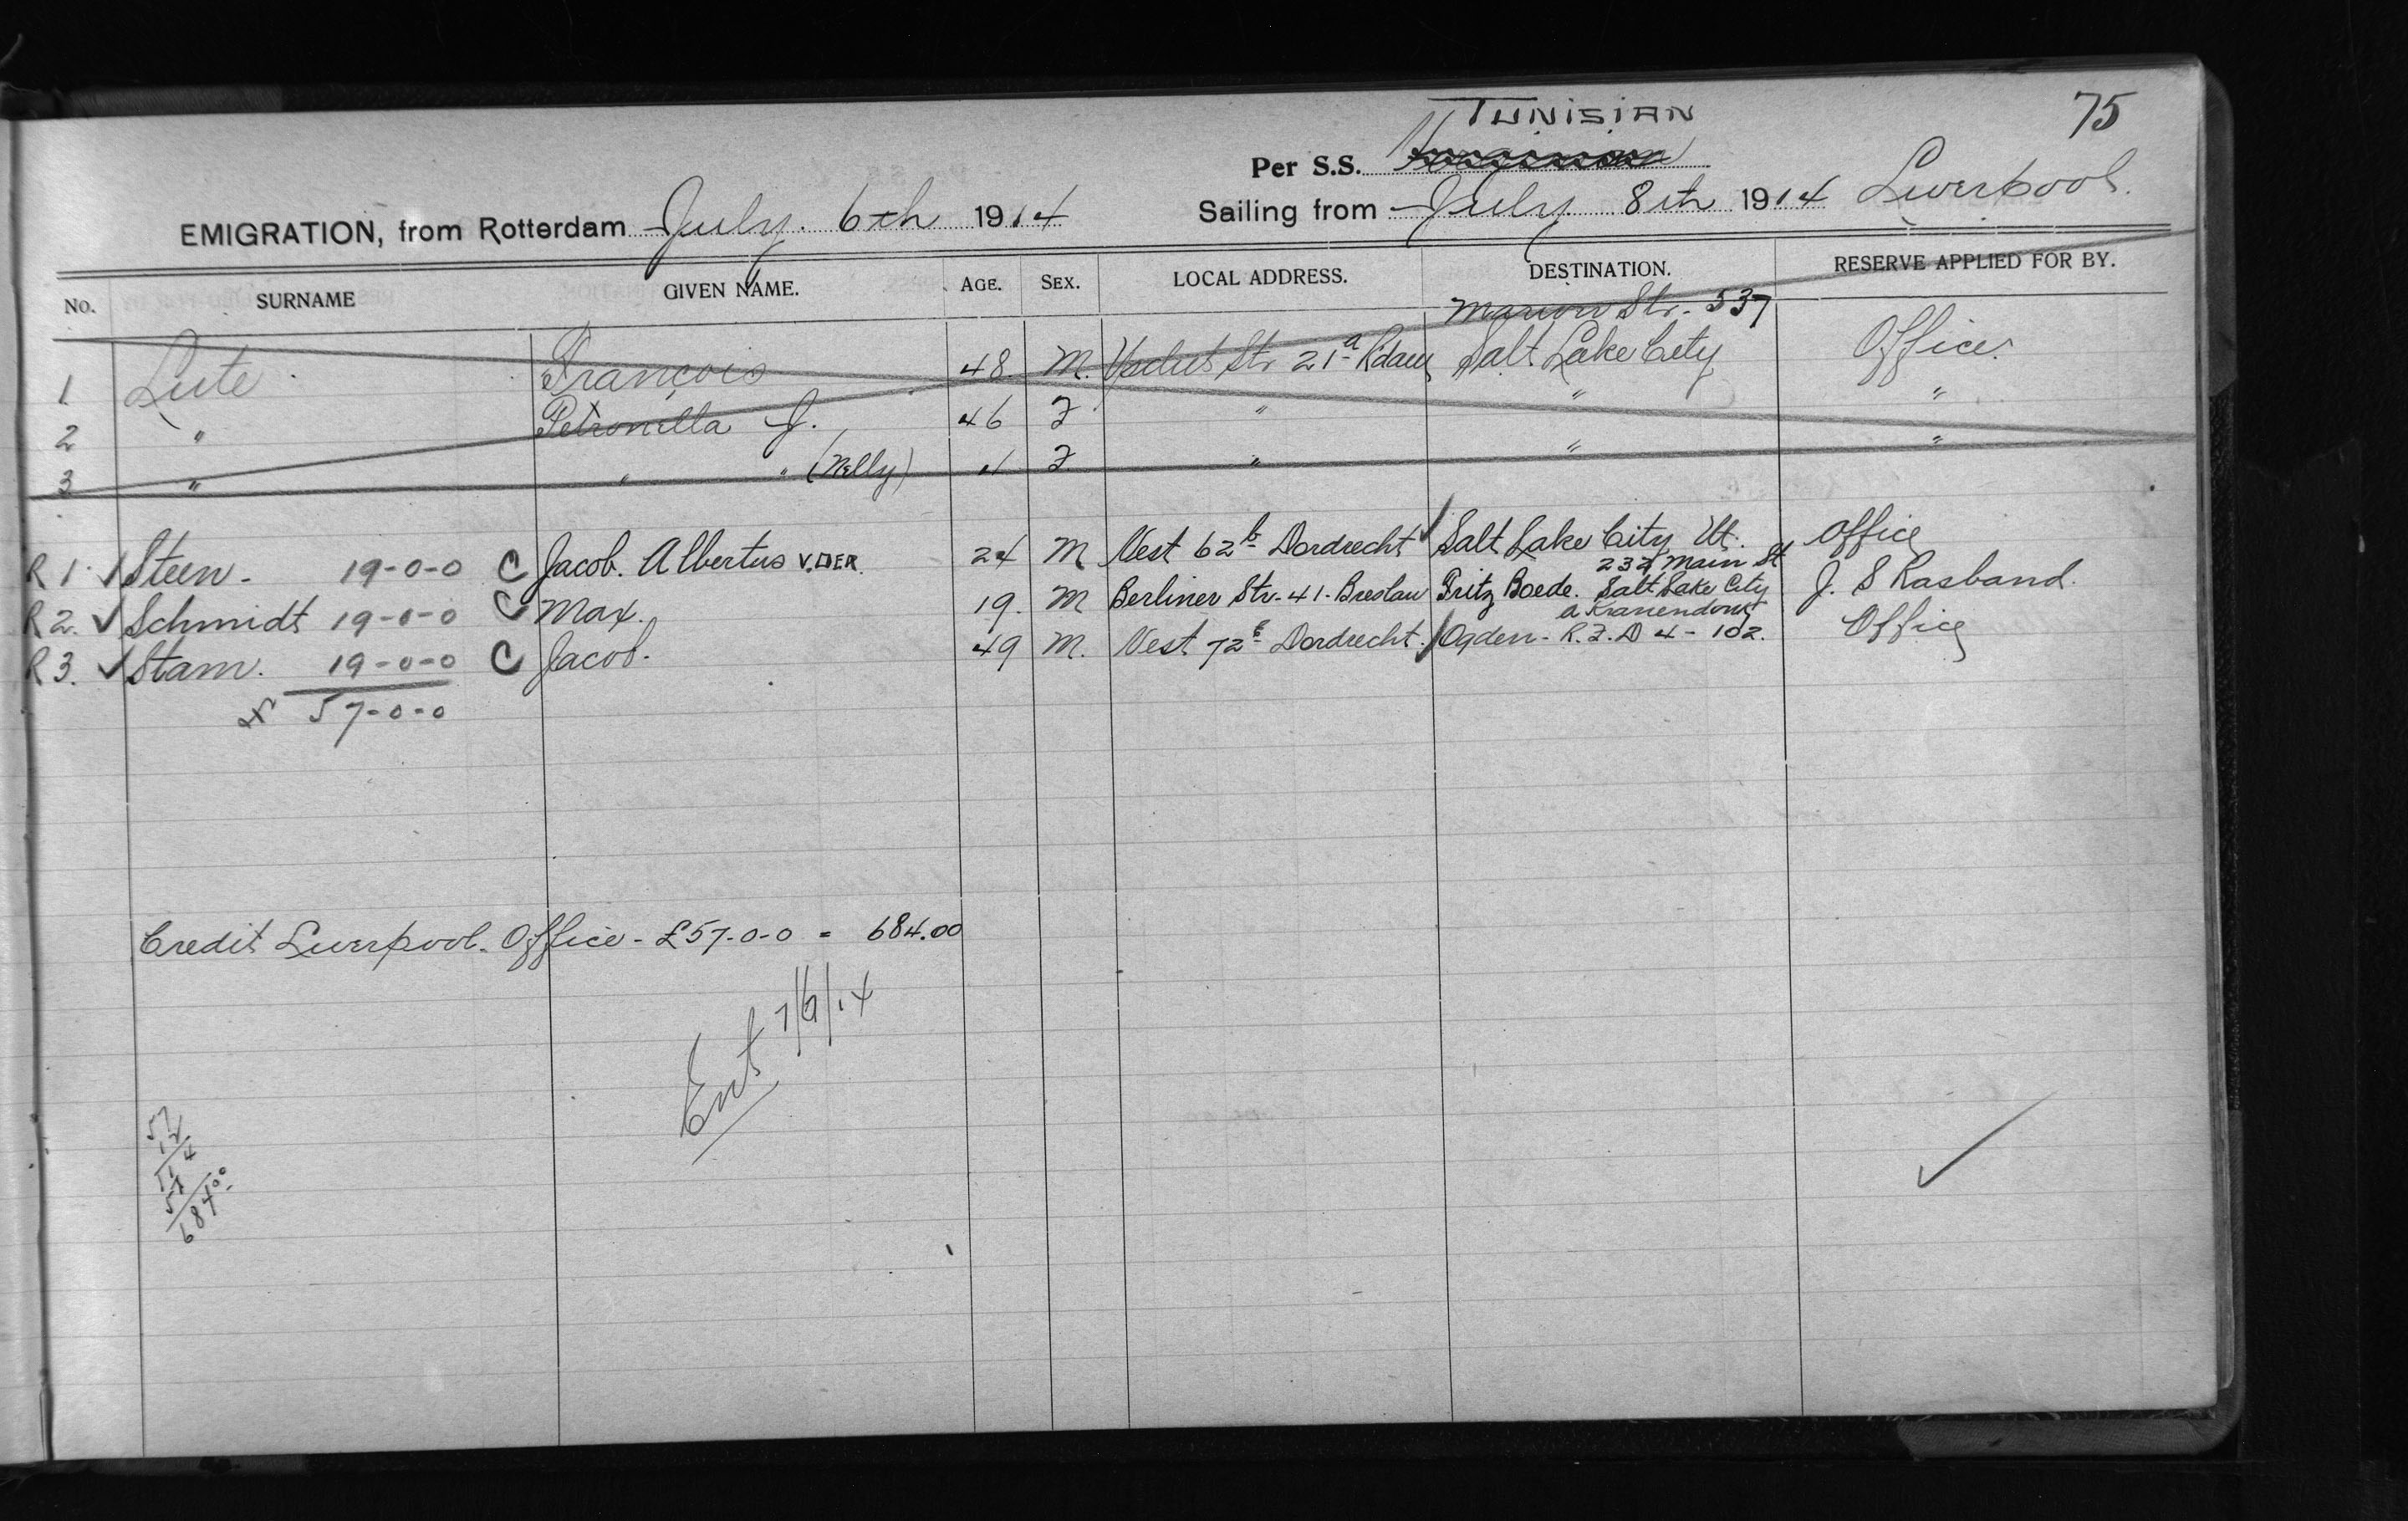 75
TUNISIAN
Per S.S.
EMIGRATION, from Rotterdam July. 6th 1914
Sailing from July 8th 1914 Liverpool.
No. SURNAME GIVEN NAME. AGE. SEX. LOCAL ADDRESS. DESTINATION. RESERVE APPLIED FOR BY.
Marion Str. 537
1 Lute François 48 M. Str 21a Rdam Salt Lake City Office.
2 " Petronella J. 46 F " " "
3 " " " (Nelly) 4 F " " "
R 1. Steen. 19-0-0 C Jacob. Albertus V.DER. 24 M Vest 62b Dordrecht Salt Lake City Ut. Office
232 Main St
R 2. Schmidt 19-0-0 C Max. 19. M Berliner Str. 41. Breslau Fritz Boede. Salt Lake City J. S Rasband.
a Kranendonk
R 3. Stam. 19-0-0 C Jacob. 49 M. Vest 72b Dordrecht. Ogden - R.F.D 4 - 102. Office
£ 57-0-0
Credit Liverpool. Office - £57-0-0 = 684.00
Ent 7/6/14
57
12
114
57
684.00